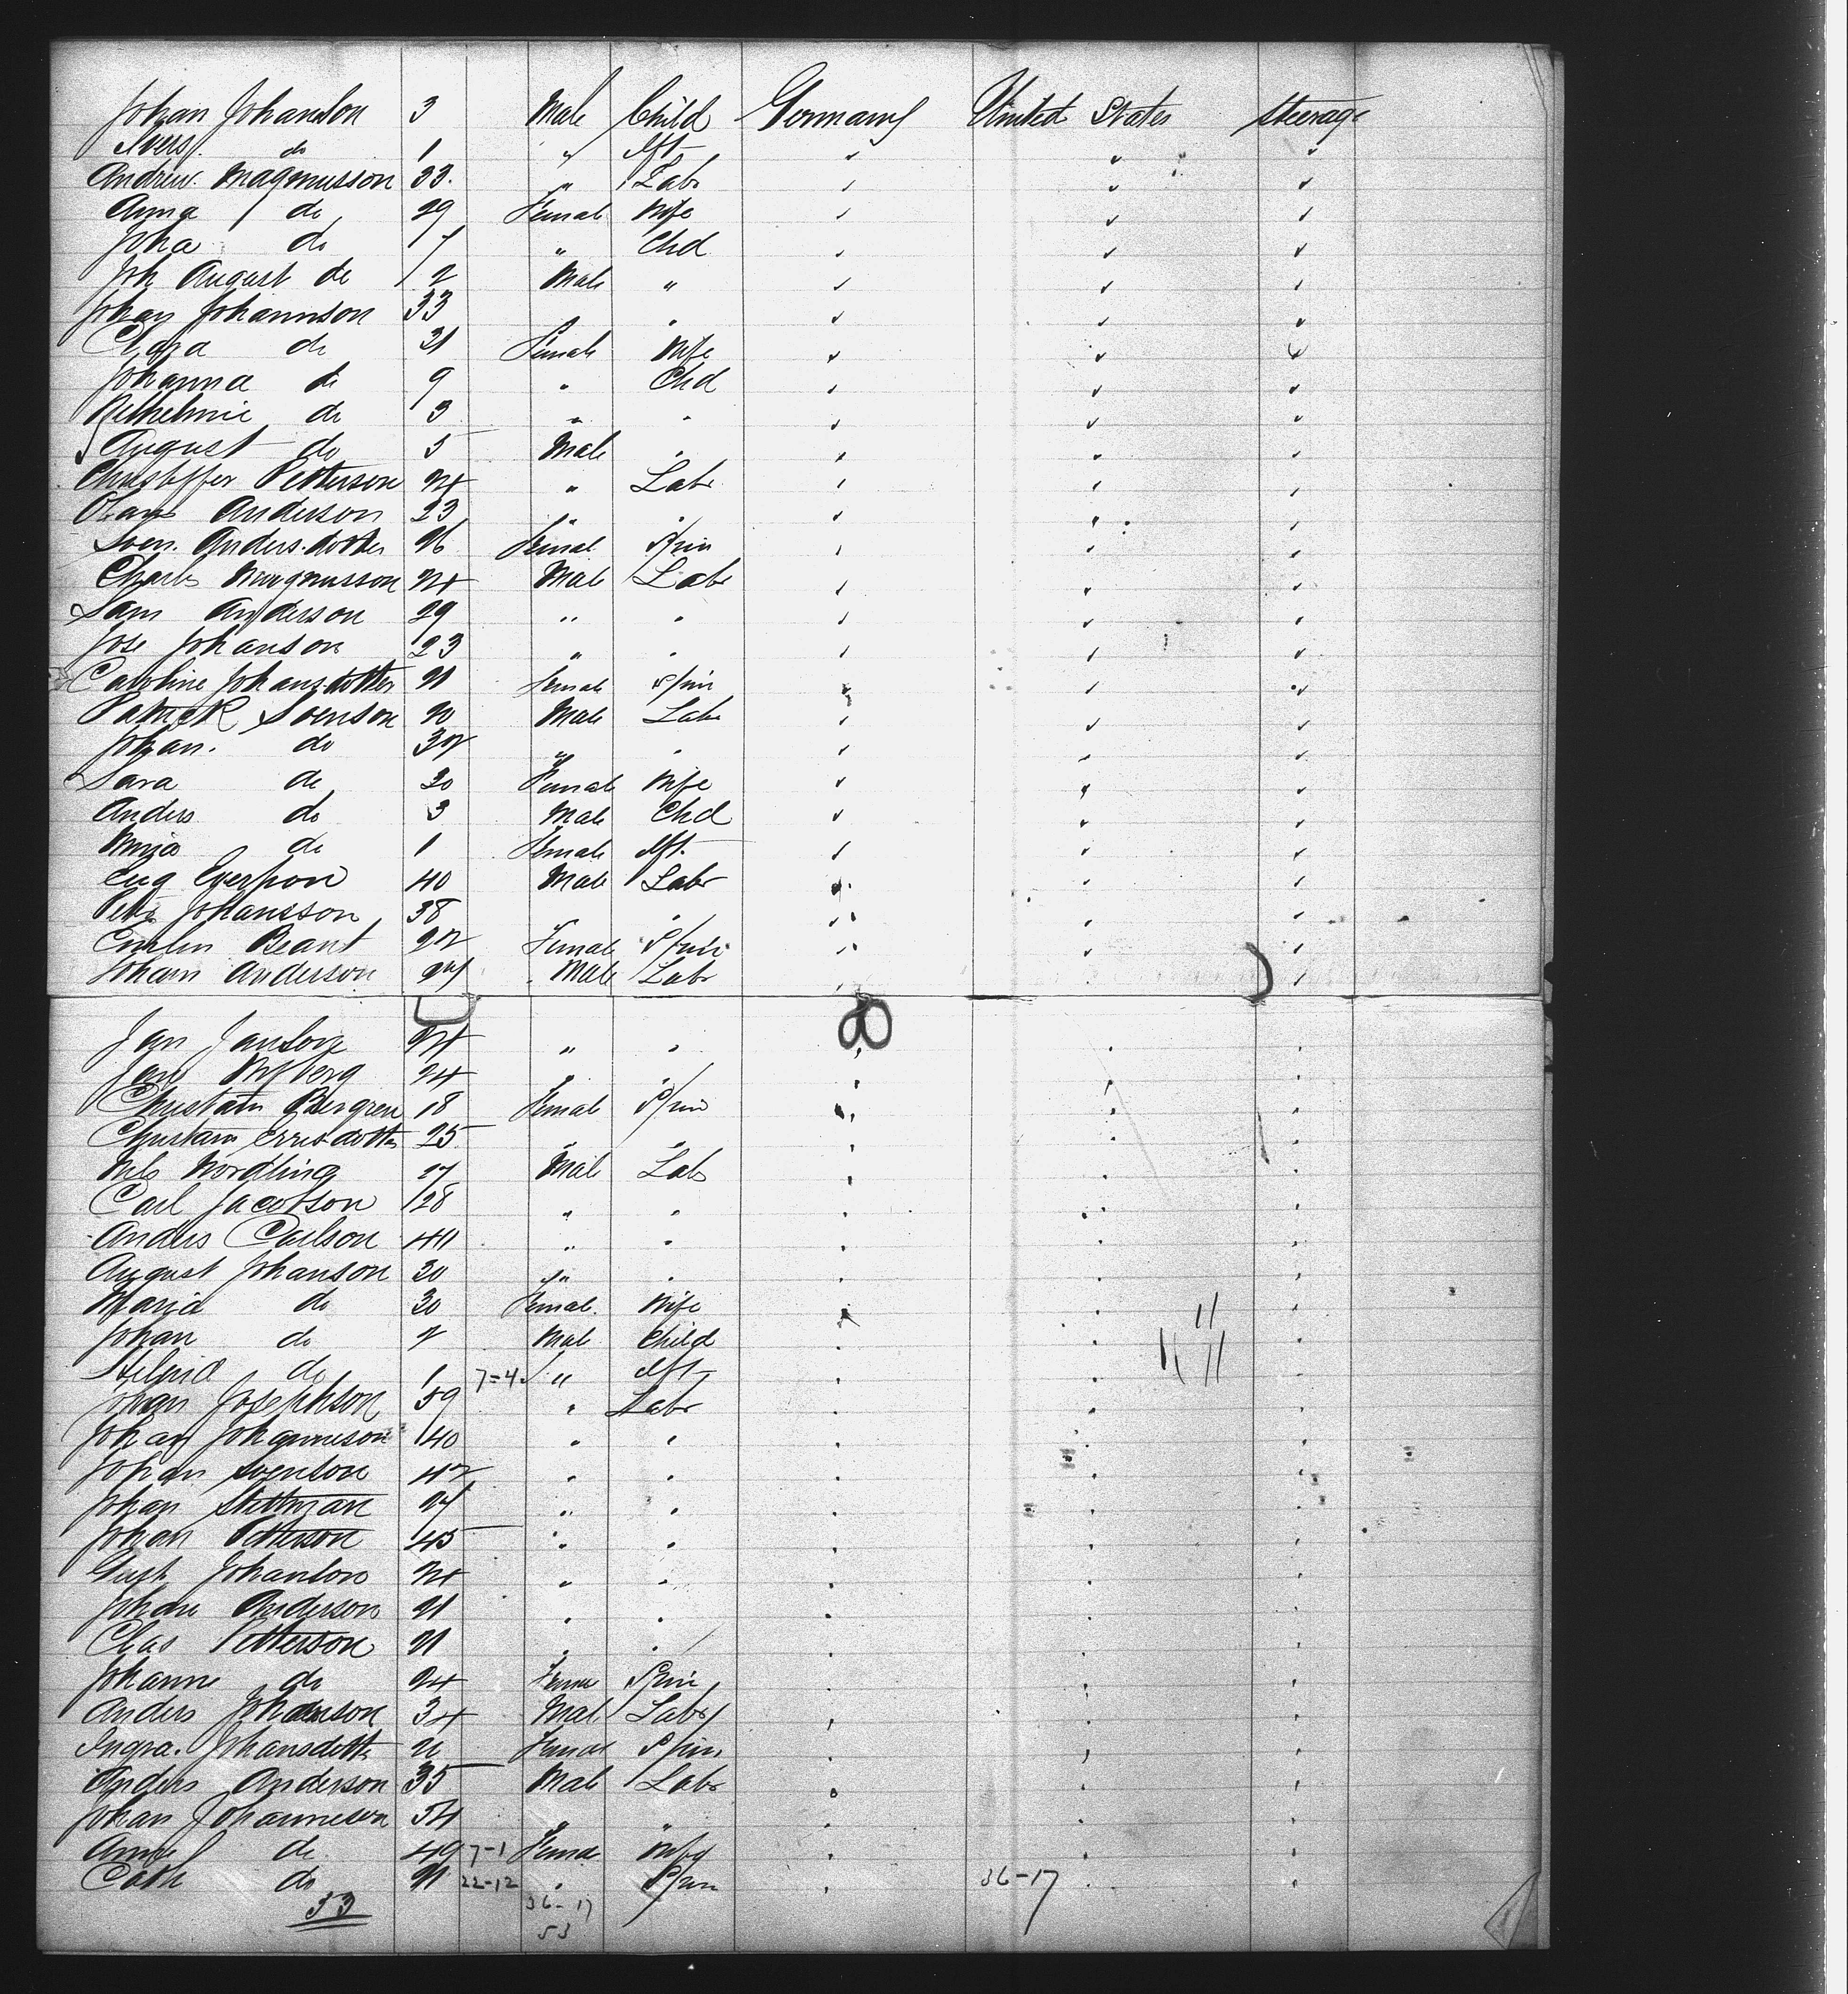 Johan Johanson 3 Male Child Germany United States Steerage
Ivers do 1 " Inft
Andrew Magnusson 33 " Labr
Anna do 29 Female Wife
Joha do 7 " Chd
Joh August do 2 Male "
Johan Johannson 33 " "
Clara do 31 Female Wife
Johanna do 9 " Chd
Wilhelmie do 3 " "
August do 5 Male "
Christoffer Petterson 24 " Labr
Olans Anderson 23 " "
Sven Anders.dotter 26 Femal Spin
Charls Magnusson 24 Male Labr
Sam Anderson 29 " "
Jose Johanson 23 " "
Caroline Johansdotter 21 Female Spin
Patrick Svenson 20 Male Labr
Johan. do 32 " "
Sara do 30 Female Wife
Anders do 3 Male Chd
Maja do 1 Female Inft.
40 Male Labr
Peter Johansson 38 " "
Beant 22 Female Spin
Johan Anderson 24 Male Labr
Jan Janson 24 " "
Jans 24 " "
Christain Bergren 18 Female Spin
Christain Errisdotter 25 " "
Nils Nordling 27 Male Labr
Carl Jacobson 28 " "
Anders Carlson 40 " "
August Johanson 30 " "
Maria do 30 Female Wife
Johan do 2 Male Child
do 1 7=4 " Inft
Johan Josephson 59 " Labr
Johan Johanneson 40 " "
Johan Svenson 42 " "
Johan 24 " "
Johan Petterson 45 " "
Gust Johanson 24 " "
Johan Anderson 21 " "
Chas Petterson 21 " "
Johanne do 24 Female Spin
Anders Johanson 34 Male Labr
Ingra. Johansdottr 21 Female Spin
Anders Anderson 35 Male Labr
Johan Johanneson 54 " "
Anna do 49 7-1 Female Wife
Cath do 21 22-12 " Spin 36-17
53 36-17
53